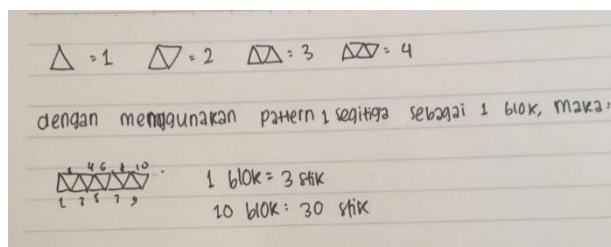 △ = 1 = 2 = 3 = 4
dengan menggunakan pattern 1 segitiga sebagai 1 blok, maka:
4 6 8 10
1 3 5 7 9
1 blok = 3 stik
10 blok = 30 stik